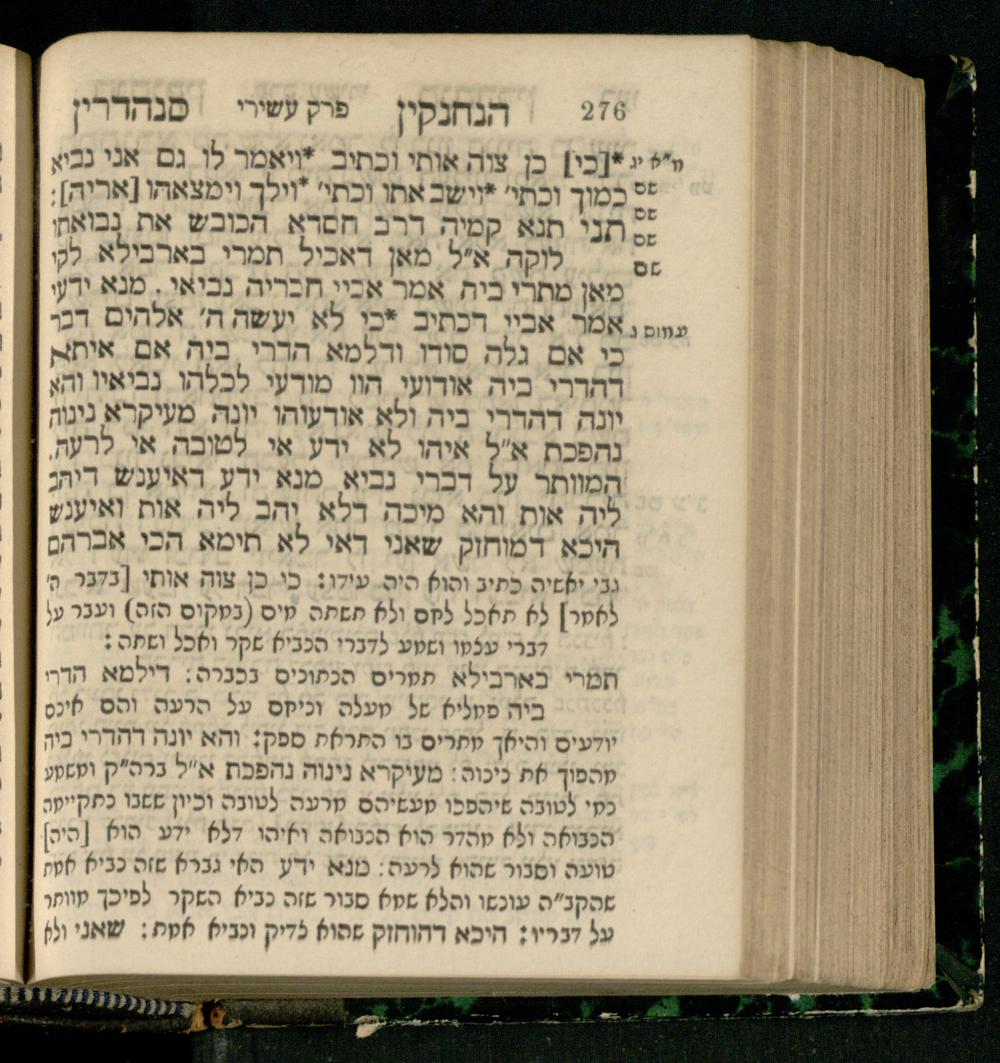 276 הנחנקין פרק עשירי סנהדרין
מ״א יג *[כי] כן צוה אותי וכתיב *ויאמר לו גם אני נביא
שם כמוך וכתי׳ *וישב אתו וכתי׳ *וילך וימצאהו [אריה]:
שם תני תנא קמיה דרב חסדא הכובש את נבואתו
שם לוקה א״ל מאן דאכיל תמרי בארבילא לקי
שם
מאן מתרי ביה אמר אביי חבריה נביאי. מנא ידעי
עמוס ג אמר אביי דכתיב *כי לא יעשה ה׳ אלהים דבר
כי אם גלה סודו ודלמא הדרי ביה אם איתא
דהדרי ביה אודועי הוו מודעי לכלהו נביאיו והא
יונה דהדרי ביה ולא אודעוהו יונה מעיקרא נינוה
נהפכת א״ל איהו לא ידע אי לטובה אי לרעה.
המוותר על דברי נביא מנא ידע דאיענש דיהב
ליה אות והא מיכה דלא יהב ליה אות ואיענש
היכא דמוחזק שאני דאי לא תימא הכי אברהם
גבי יאשיה כתיב והוא היה עידו: כי כן צוה אותי [בדבר ה׳
לאמר] לא תאכל לחם ולא תשתה מים (במקום הזה) ועבר על
דברי עצמו ושמע לדברי הנביא שקר ואכל ושתה:
תמרי בארבילא תמרים הנתונים בכברה: דילמא הדרי
ביה פמליא של מעלה וניחם על הרעה והם אינם
יודעים והיאך מתרים בו התראת ספק: והא יונה דהדרי ביה
מהפוך את נינוה: מעיקרא נינוה נהפכת א״ל ברה״ק ומשמע
נמי לטובה שיהפכו מעשיהם מרעה לטובה וכיון ששבו נתקיימה
הנבואה ולא מהדר הוא הנבואה ואיהו דלא ידע הוא [היה]
טועה וסבור שהוא לרעה: מנא ידע האי גברא שזה נביא אמת
שהקב״ה עונשו והלא שמא סבור שזה נביא השקר לפיכך מוותר
על דבריו: היכא דהוחזק שהוא צדיק ונביא אמת: שאני ולא